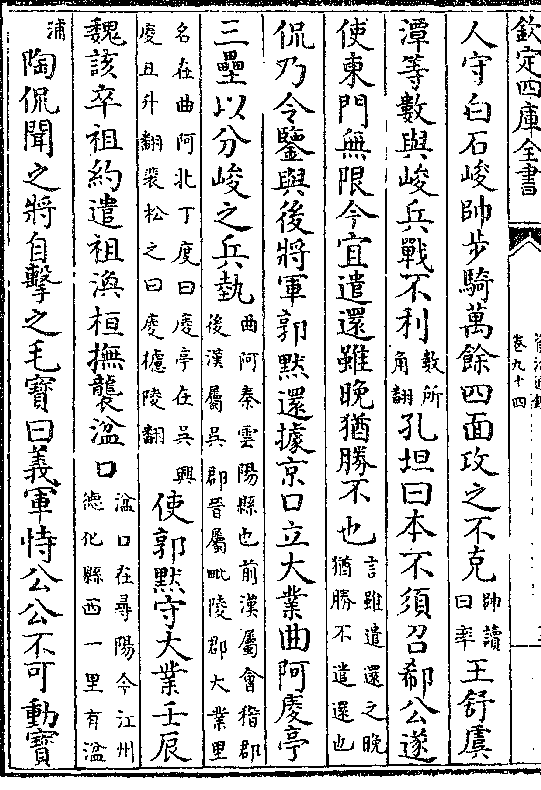 欽定四庫全書
卷九十四
人守白石峻帥步騎萬餘四面攻之不克帥讀曰率王舒虞
潭等數與峻兵戰不利數所角翻孔坦曰本不須召郗公遂
使東門無限今宜遣還雖晚猶勝不也言雖遣還之晚猶勝不遣還也
侃乃令鑒與後將軍郭黙還據京口立大業曲阿庱亭
三壘以分峻之兵埶曲阿秦雲陽縣也前漢屬會稽郡後漢屬吳郡晉屬毗陵郡大業里
名在曲阿北丁度曰庱亭在吳興庱丑升翻裴松之曰庱攄陵翻使郭黙守大業壬辰
魏該卒祖約遣祖渙桓撫襲湓口湓口在尋陽今江州德化縣西一里有湓
浦陶侃聞之將自擊之毛寶曰義軍恃公公不可動寶